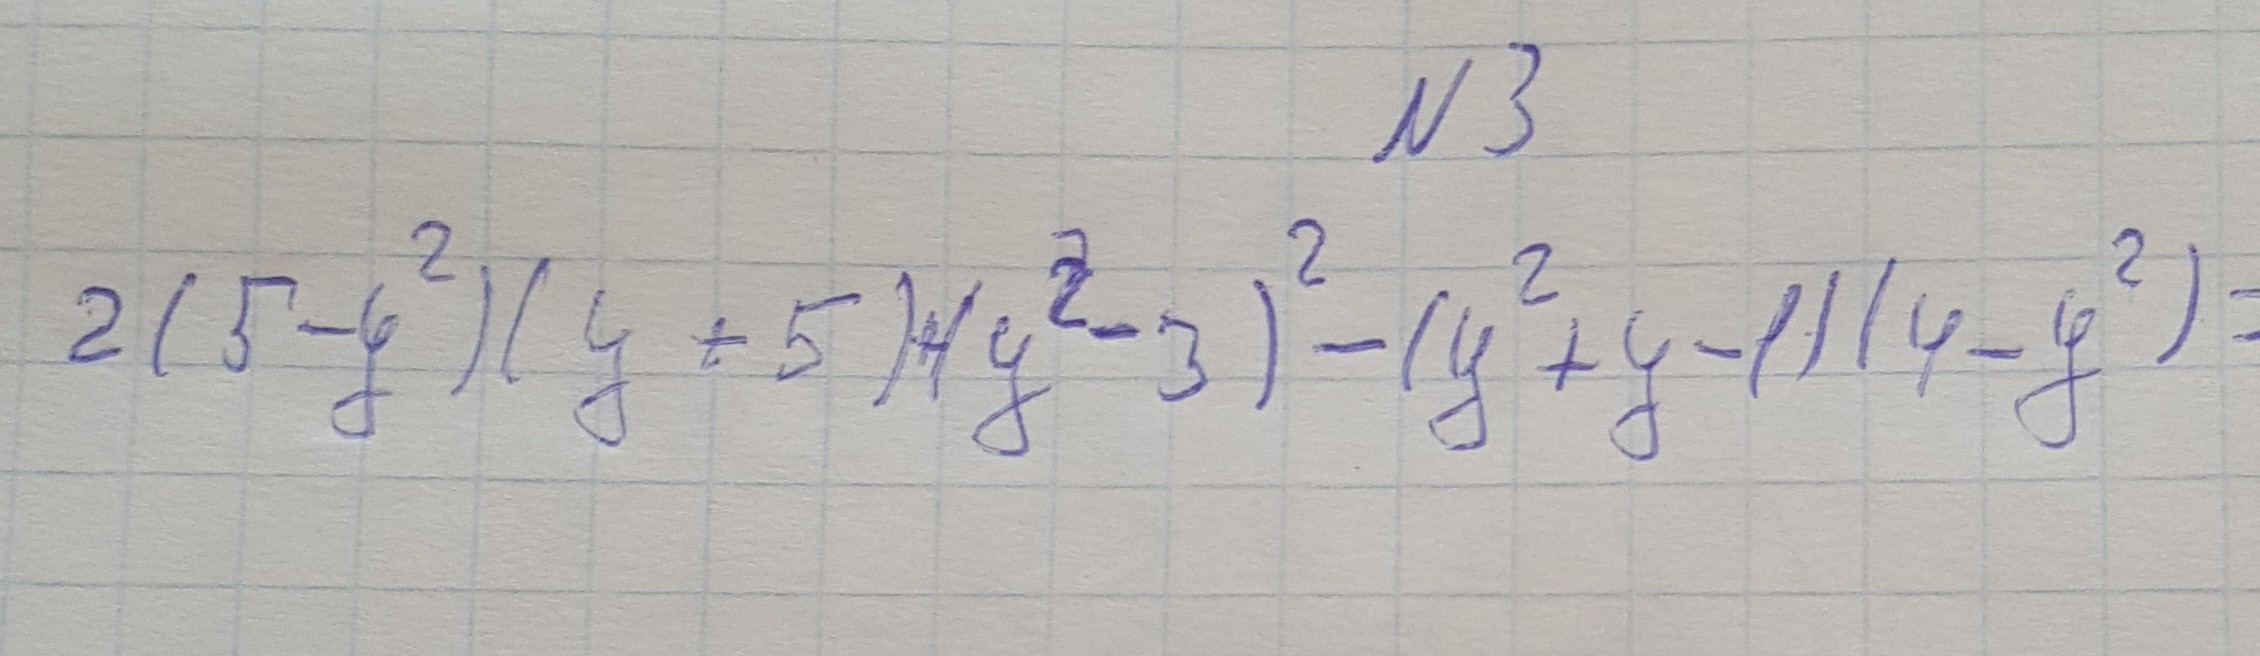 N3
2(5-y²)(y+5)+(y²-3)²-(y²+y-1)(4-y²)=